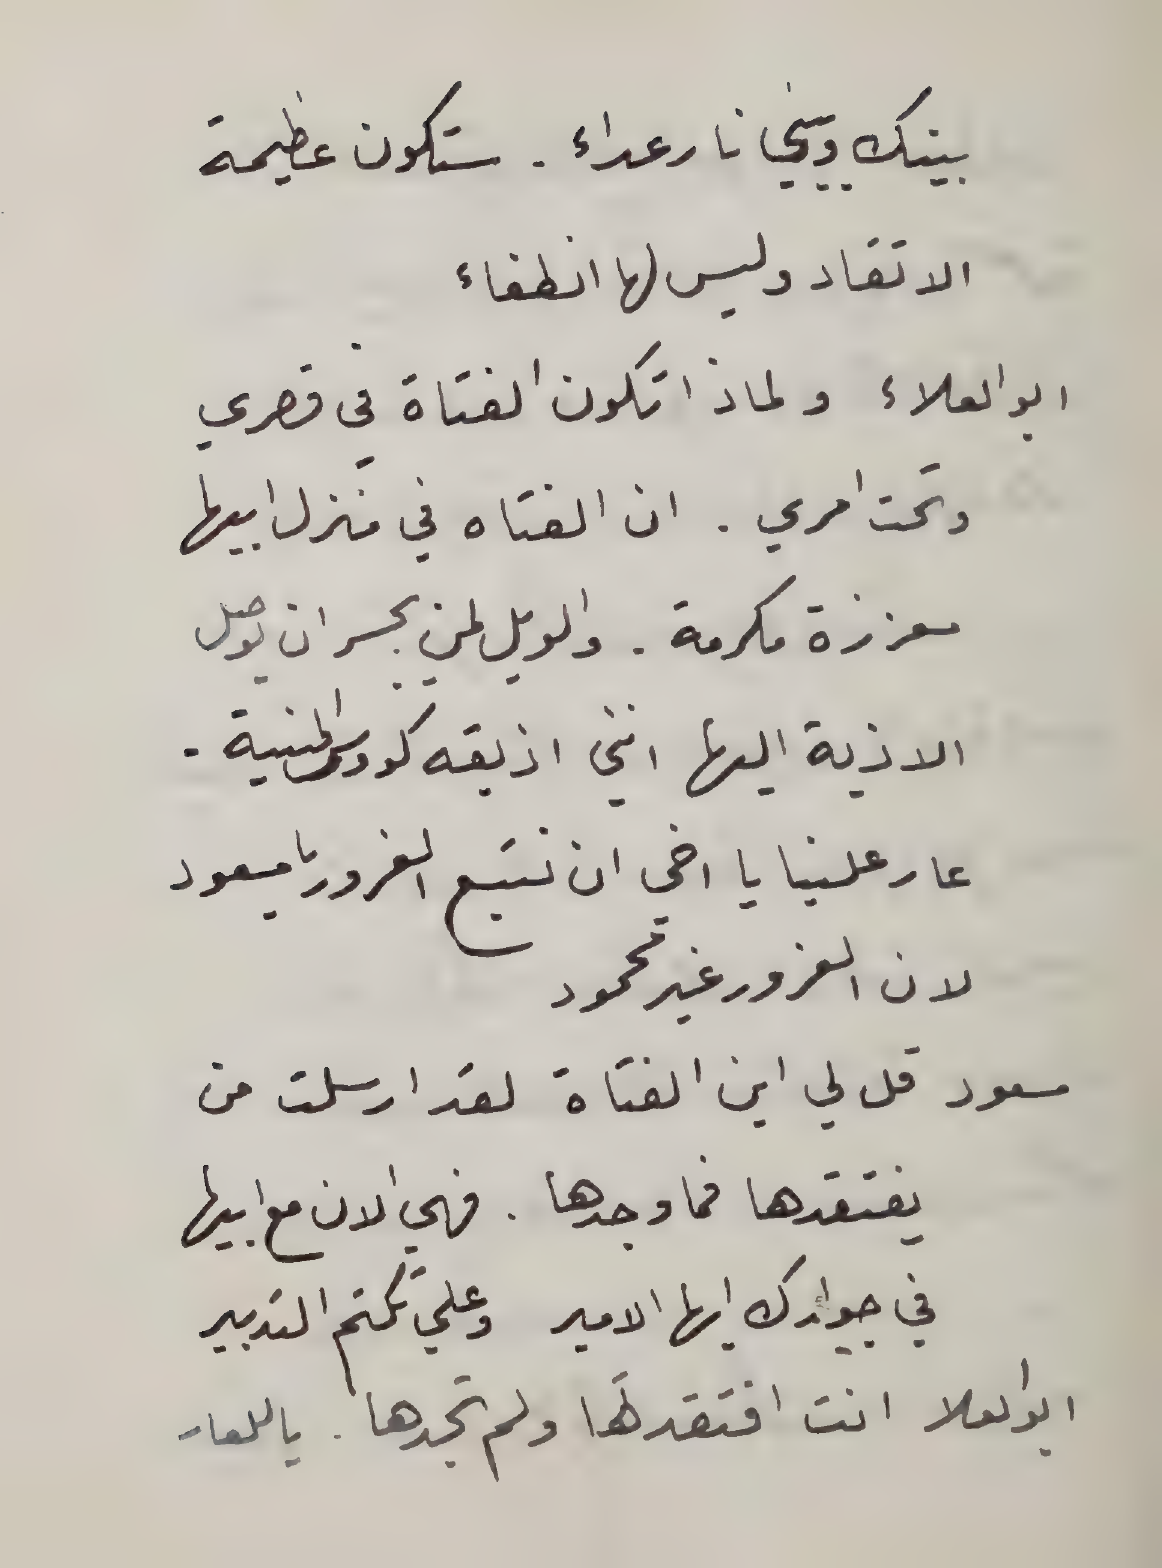 بينك وبيني نار عداء . ستكون عظيمة
الاتقاد وليس لها انطفاء
ابو العلاء ولماذا تكون الفتاة في قصري
وتحت امري . ان الفتاه في منزل ابيها
معززة مكرمة . والويل لمن يجسر ان يوصل
الاذية اليها انني اذيقه كووس المنية .
عار علينا يا اخي ان نتبع الغرور يا مسعود
لان الغرور غير محمود
مسعود قل لي اين الفتاة لقد ارسلت من
يفتقدها فما وجدها . فهي الان مع ابيها
في جوارك ايها الامير وعلي تكتم التدبير
ابو العلا انت افتقدتها ولم تجدها . يا للعار